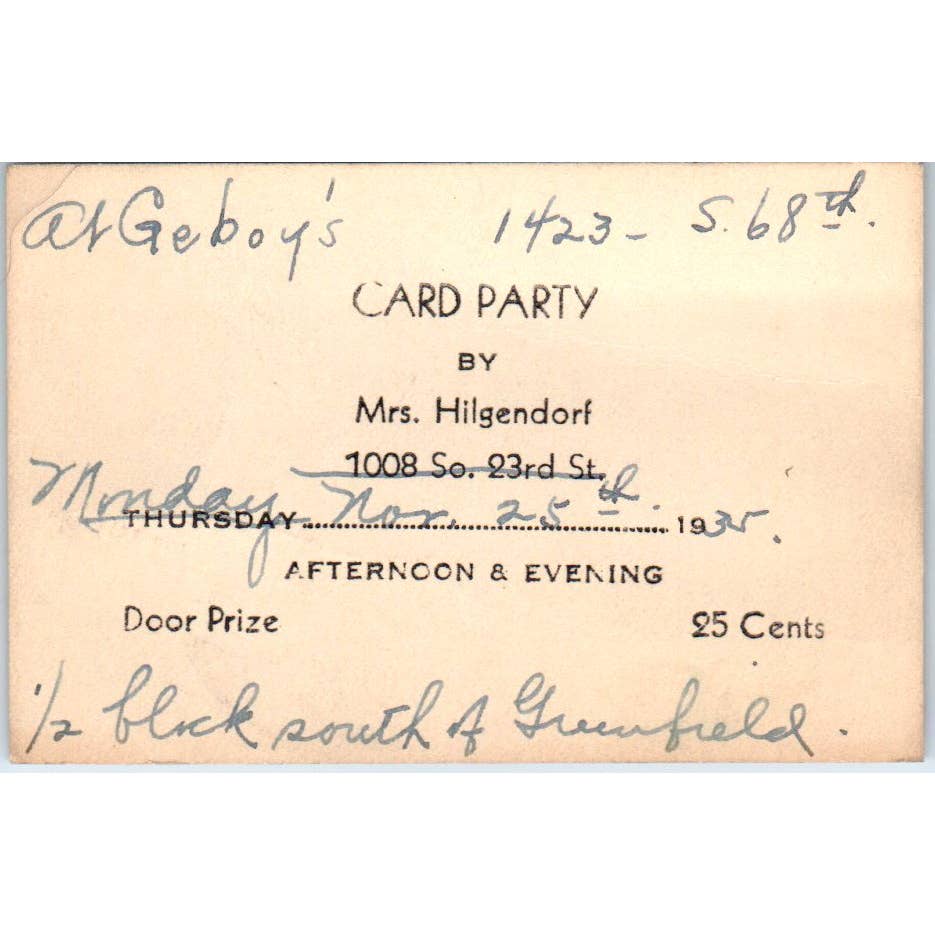 At Geboy's 1423 - S. 68th.
CARD PARTY
BY
Mrs. Hilgendorf
1008 So. 23rd St.
Monday Nov. 25th.
THURSDAY 1935.
AFTERNOON & EVENING
Door Prize 25 Cents
1/2 block south of Greenfield.